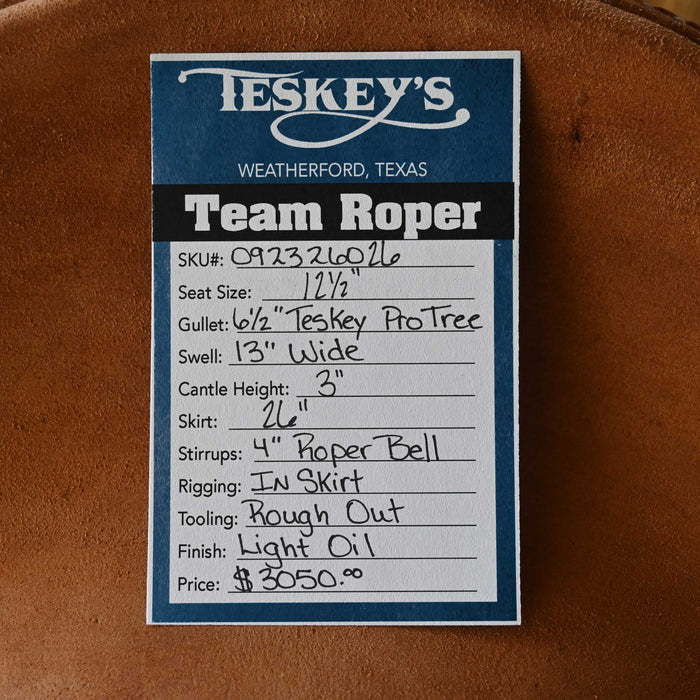 TESKEY'S
WEATHERFORD, TEXAS
Team Roper
SKU#: 092326026
Seat Size: 12½"
Gullet: 6½" Teskey ProTree
Swell: 13" Wide
Cantle Height: 3"
Skirt: 26"
Stirrups: 4" Roper Bell
Rigging: IN Skirt
Tooling: Rough Out
Finish: Light Oil
Price: $3050.00